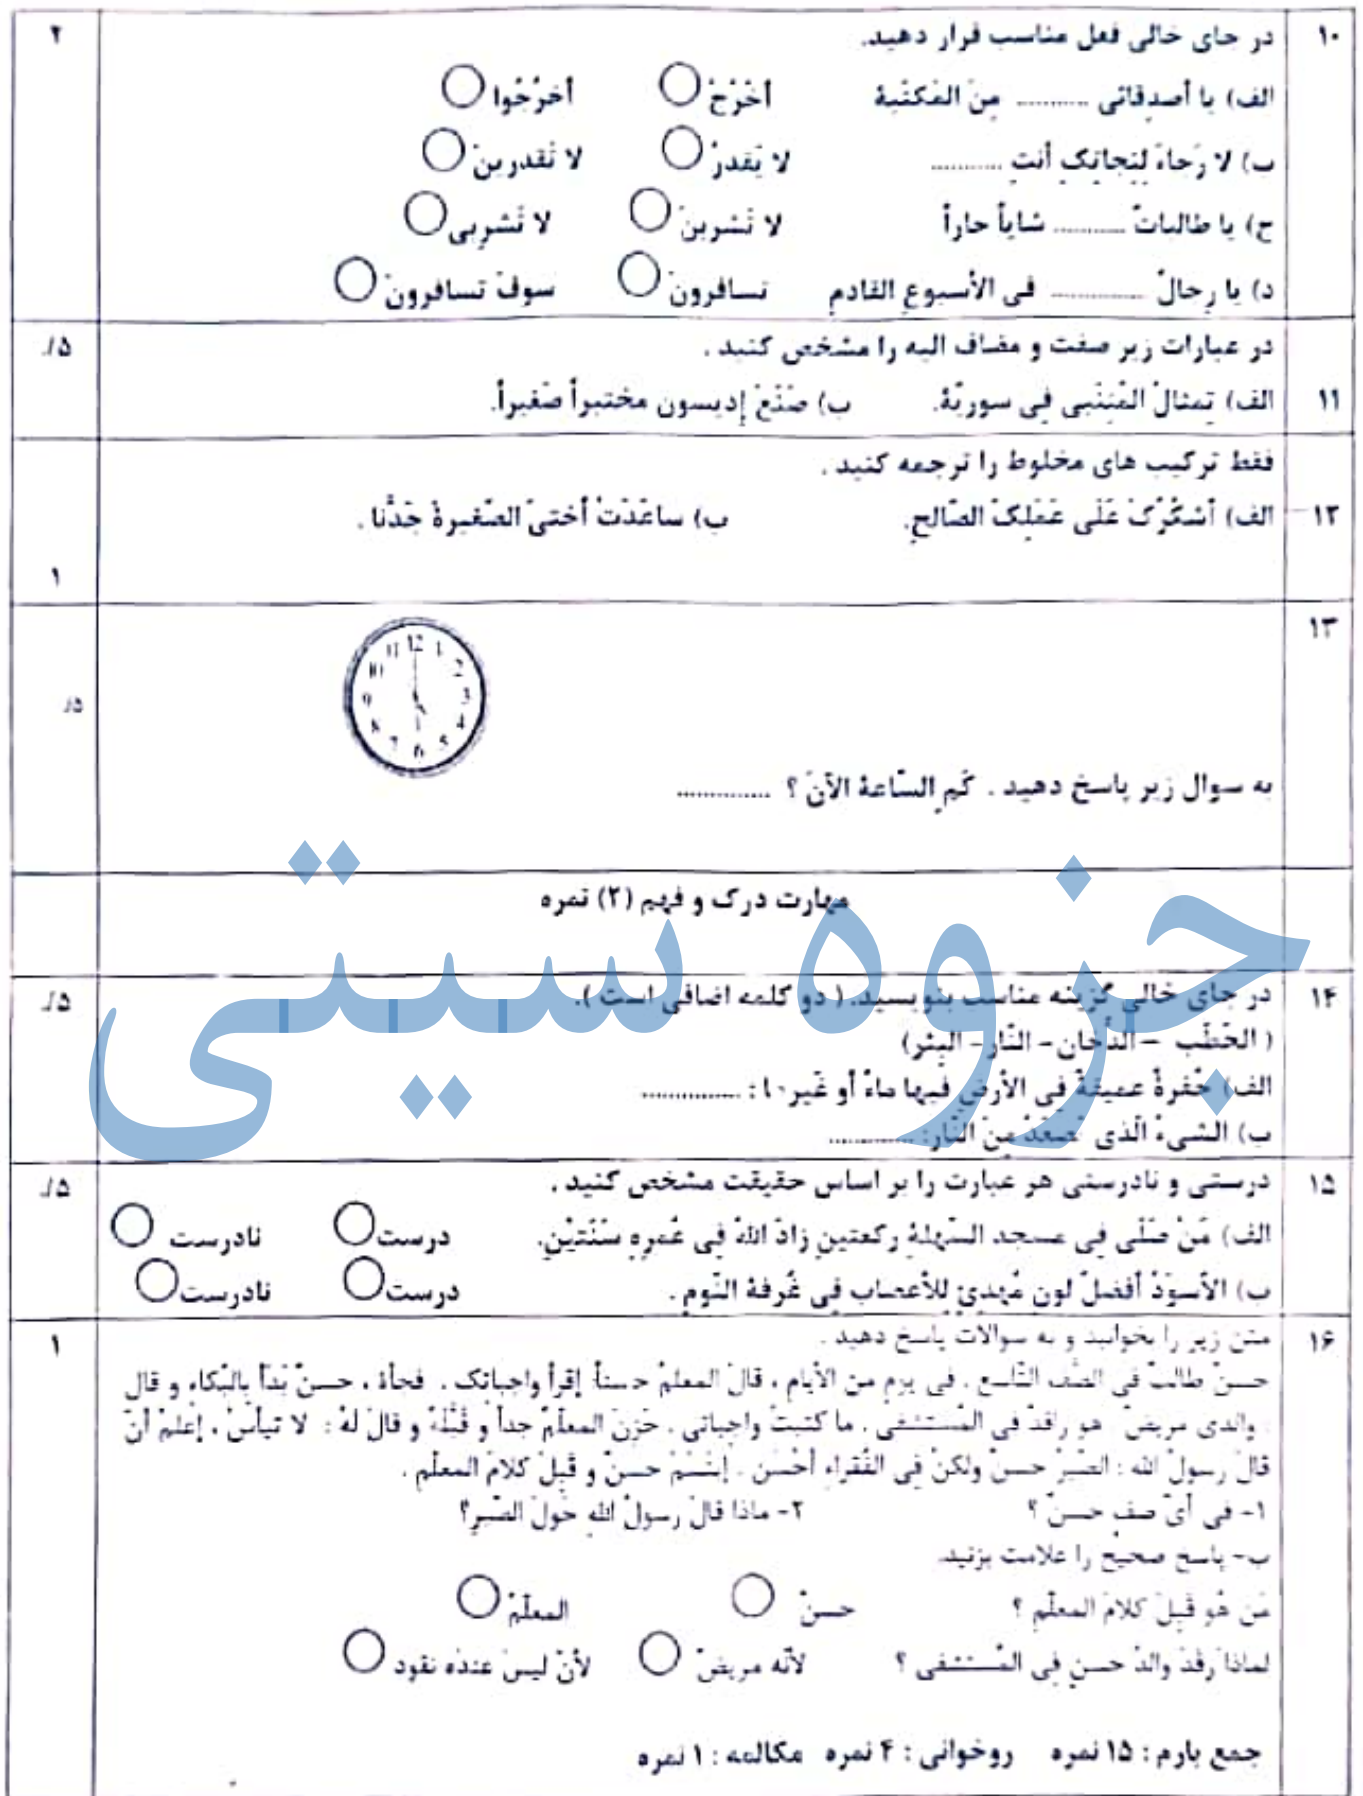 ۱۰ در جای خالی فعل مناسب قرار دهید. ۲
الف) یا أصدِقائی ........... مِنَ المَکتَبة أخْرُجْ أخرُجُوا
ب) لا رَجاءَ لِنَجاتِکِ أنتِ ........... لا یَقدرُ لا تَقدرینَ
ج) یا طالباتُ ........... شایاً حاراً لا تَشربنَ لا تَشربی
د) یا رجالُ ........... فی الأسبوعِ القادمِ تسافرونَ سوفَ تسافرونَ
در عبارات زیر صفت و مضاف الیه را مشخص کنید . ۵/.
۱۱ الف) تِمثالُ المُتِنَبی فِی سوریّة. ب) صَنَعَ إدیسون مختبراً صَغیراً.
فقط ترکیب های مخلوط را ترجمه کنید .
۱۲ الف) أشکُرُکَ عَلَی عَمَلِکَ الصّالحِ. ب) ساعَدَتْ أختیَ الصّغیرةُ جَدَّنا .
۱
۱۳
11 12 1
10 2
9 3
8 4
7 6 5
۵/.
به سوال زیر پاسخ دهید . کَمِ السّاعةُ الآنَ ؟ ..............
مهارت درک و فهم (۲) نمره
۱۴ در جای خالی گزینه مناسب بنویسید. ( دو کلمه اضافی است ). ۵/.
( الحَطَب – الدُّخان- النّار- البِئر)
الف) حُفرةٌ عمیقةٌ فی الأرضِ فیها ماءٌ أو غَیر ها : ...............
ب) الشیءُ الّذی یَصْعَدُ مِنَ النّارِ: .............
۱۵ درستی و نادرستی هر عبارت را بر اساس حقیقت مشخص کنید . ۵/.
الف) مَنْ صَلّی فِی مسجد السّهلةِ رکعتینِ زادَ اللهُ فِی عُمرِهِ سَنَتَیْنِ. درست نادرست
ب) الأسوَدُ أفضلُ لون مُهدِیٍ لِلأعصاب فِی غُرفةِ النّوم . درست نادرست
۱۶ متن زیر را بخوانید و به سوالات پاسخ دهید . ۱
حسنٌ طالبٌ فی الصَّف التّاسع . فی یومٍ من الأیام ، قالَ المعلمُ حسناً: إقرأ واجباتِک . فجأة ، حسنٌ بَدَأ بِالبُکاءِ و قال
: والدی مریضٌ هو راقدٌ فی المُستشفی . ما کتبتُ واجباتی . حَزِنَ المعلّمُ جداً و قَبَّلَهُ و قالَ لهُ : لا تیأسْ ، إعلمْ أنّ
قالَ رسولُ الله : الصّبرُ حسنٌ ولکنْ فِی الفُقراءِ أحْسَن . إبتَسَمَ حسنٌ و قَبِلَ کلامَ المعلّم .
۱- فی أیّ صفٍ حسنٌ ؟ ۲- ماذا قالَ رسولُ اللهِ حَولَ الصّبرِ؟
ب- پاسخ صحیح را علامت بزنید.
مَن هُو قَبِلَ کلامَ المعلّمِ ؟ حسنٌ المعلّمُ
لماذا رقَدَ والدُ حسنٍ فِی المُستشفی ؟ لأنّه مریضٌ لأنّ لیسَ عندَه نقود
جمع بارم : ۱۵ نمره روخوانی : ۴ نمره مکالمه : ۱ نمره
جزوه سیتی